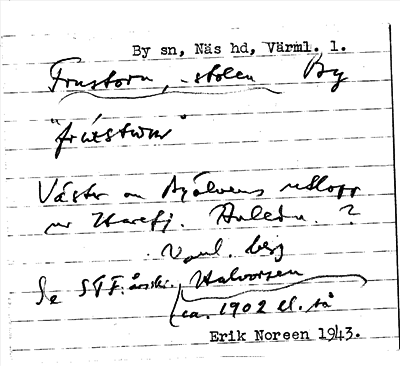 By sn, Näs hd, Värml. l.
Frustorn, -stolen By
"frúestωn"
Väster om Byälvens utlopp
ur Harefj. Anledn. ?
Vanl. berg
Se STF:s årsskr. Halvorsen
ca. 1902 el. så
Erik Noreen 1943.